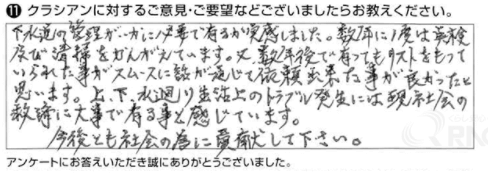 ⑪ クラシアンに対するご意見・ご要望などございましたらお教えください。
下水道の管理がいかに大事で有るか実感しました。数年に1度は点検
及び清掃をかんがえています。又、数年後で有ってもリストをもって
いられた事がスムースに話が通じて依頼出来た事が良かったと
思います。上、下、水廻り生活上のトラブル発生には現社会の
救済に大事で有る事と感じています。
今後とも社会の為に貢献して下さい。
アンケートにお答えいただき誠にありがとうございました。